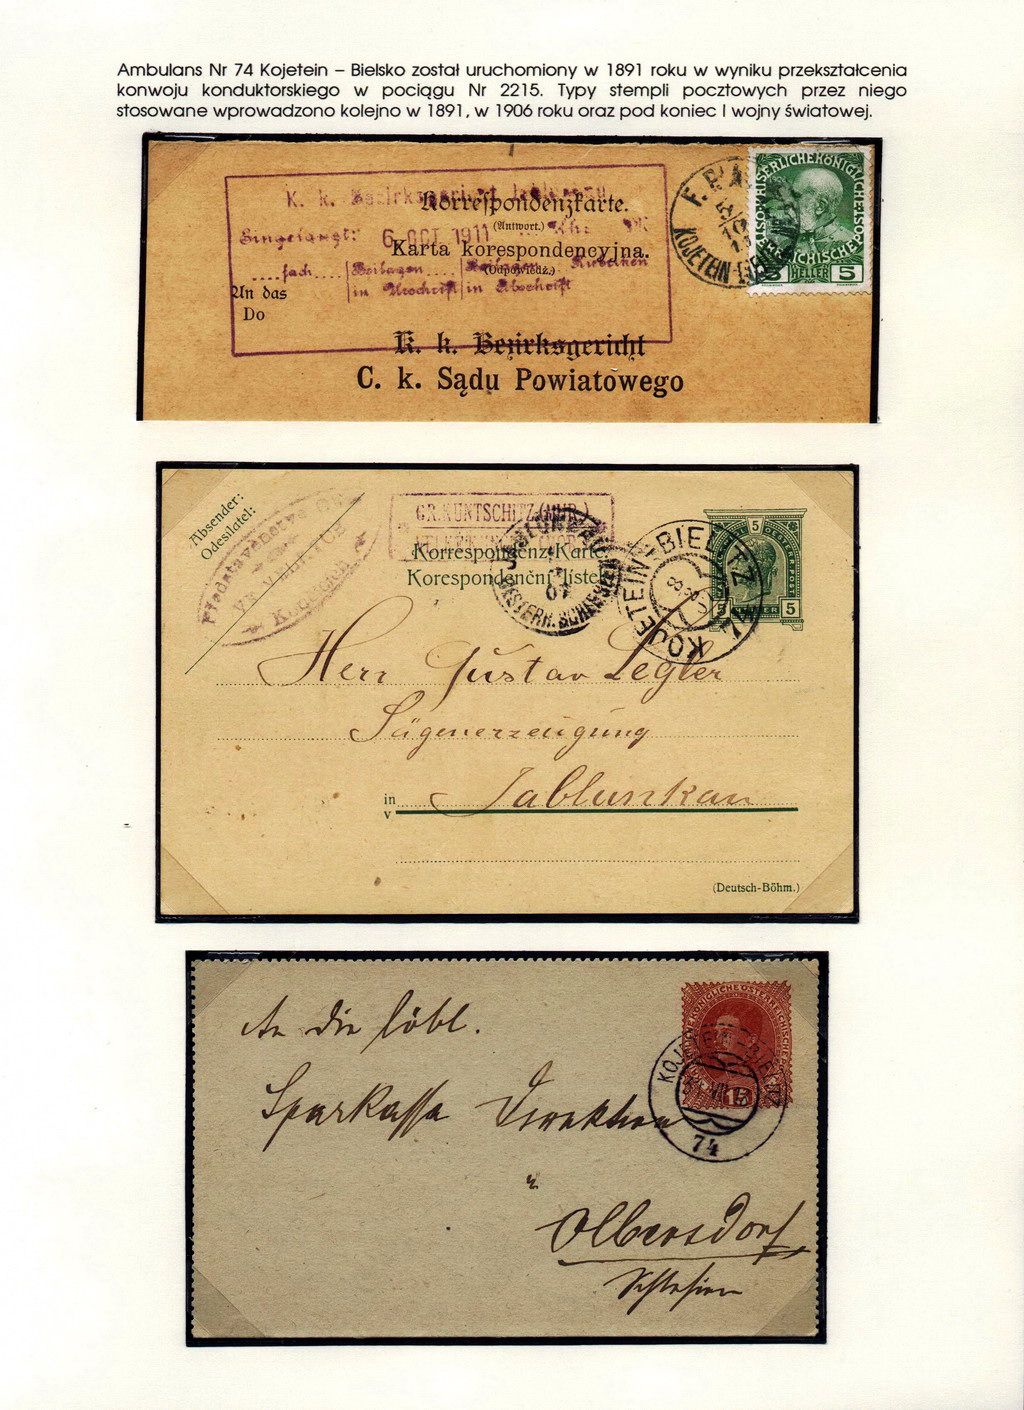 Ambulans Nr 74 Kojetein – Bielsko został uruchomiony w 1891 roku w wyniku przekształcenia
konwoju konduktorskiego w pociągu Nr 2215. Typy stempli pocztowych przez niego
stosowane wprowadzono kolejno w 1891, w 1906 roku oraz pod koniec I wojny światowej.
K. k. Bezirksgericht
Korrespondenzkarte.
(Antwort.)
Eingelangt: 6 OCT 1911
Karta korespondencyjna.
(Odpowiedź.)
fach Beilagen Rubriken
An das in Urschrift in Abschrift
Do
K. k. Bezirksgericht
C. k. Sądu Powiatowego
KOJETEIN-BIELITZ
5 HELLER 5
Absender:
Odesilatel:
GR. KUNTSCHITZ
Korrespondenz-Karte
Korespondenční lístek
07
ÖSTERR. SCHLESIEN
KOJETEIN-BIELITZ 74
5
5 HELLER 5
Herr Gustav Legler
Sägenerzeugung
in Jablunkau
v
(Deutsch-Böhm.)
An die löbl.
Sparkassa Direktion
Olbersdorf
Schlesien
KAISERLICHE KÖNIGLICHE ÖSTERREICHISCHE POST
15
KOJETEIN-BIELITZ
74